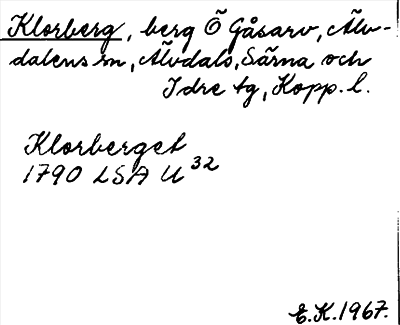 Klorberg, berg Ö Gåsarv, Älv-
dalens sn, Älvdals, Särna och
Idre tg, Kopp. l.
Klorberget
1790 LSA U 32
E.K. 1967.